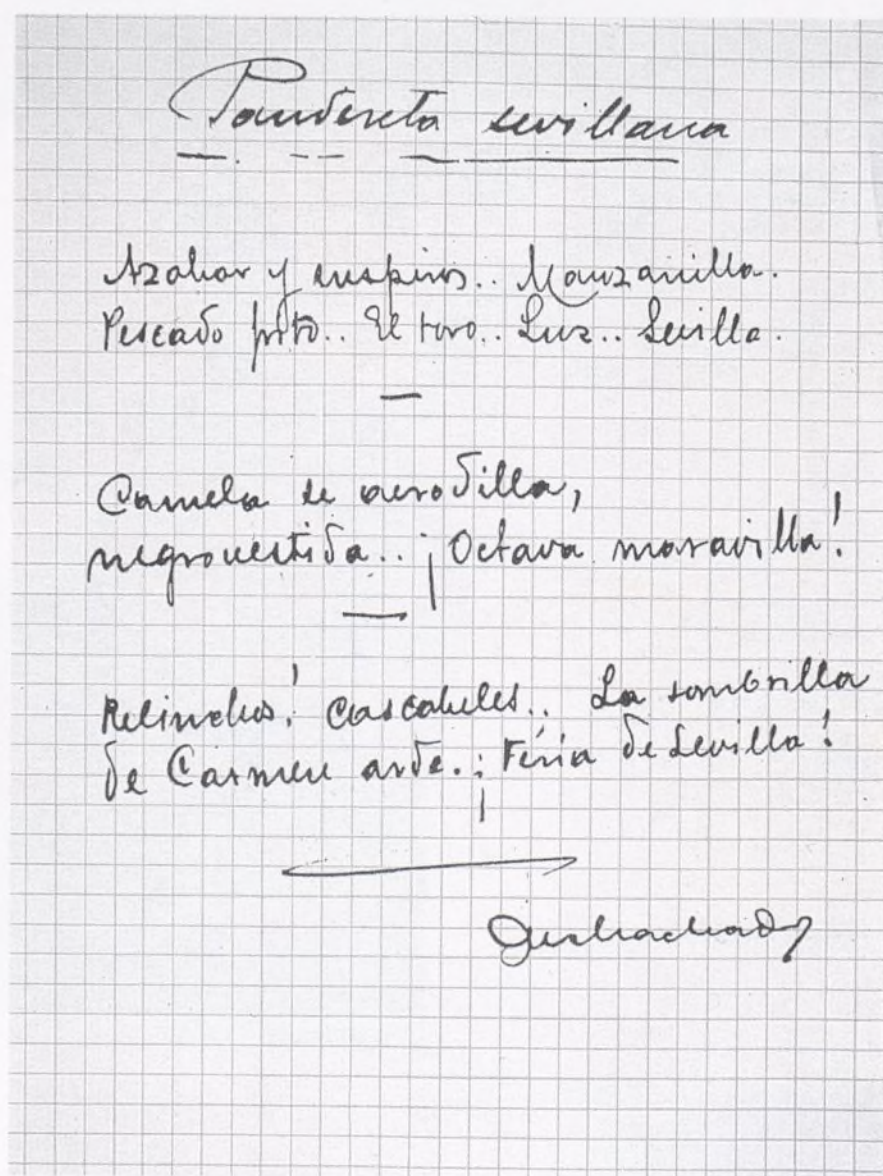 Pandereta sevillana
Azahar y suspiros.. Manzanilla.
Pescado frito.. El toro.. Luz.. Sevilla.
Camela de
negrovestida.. ¡Octava maravilla!
Relinchos! Cascabeles.. La sombrilla
de Carmen arde.. ¡Feria de Sevilla!